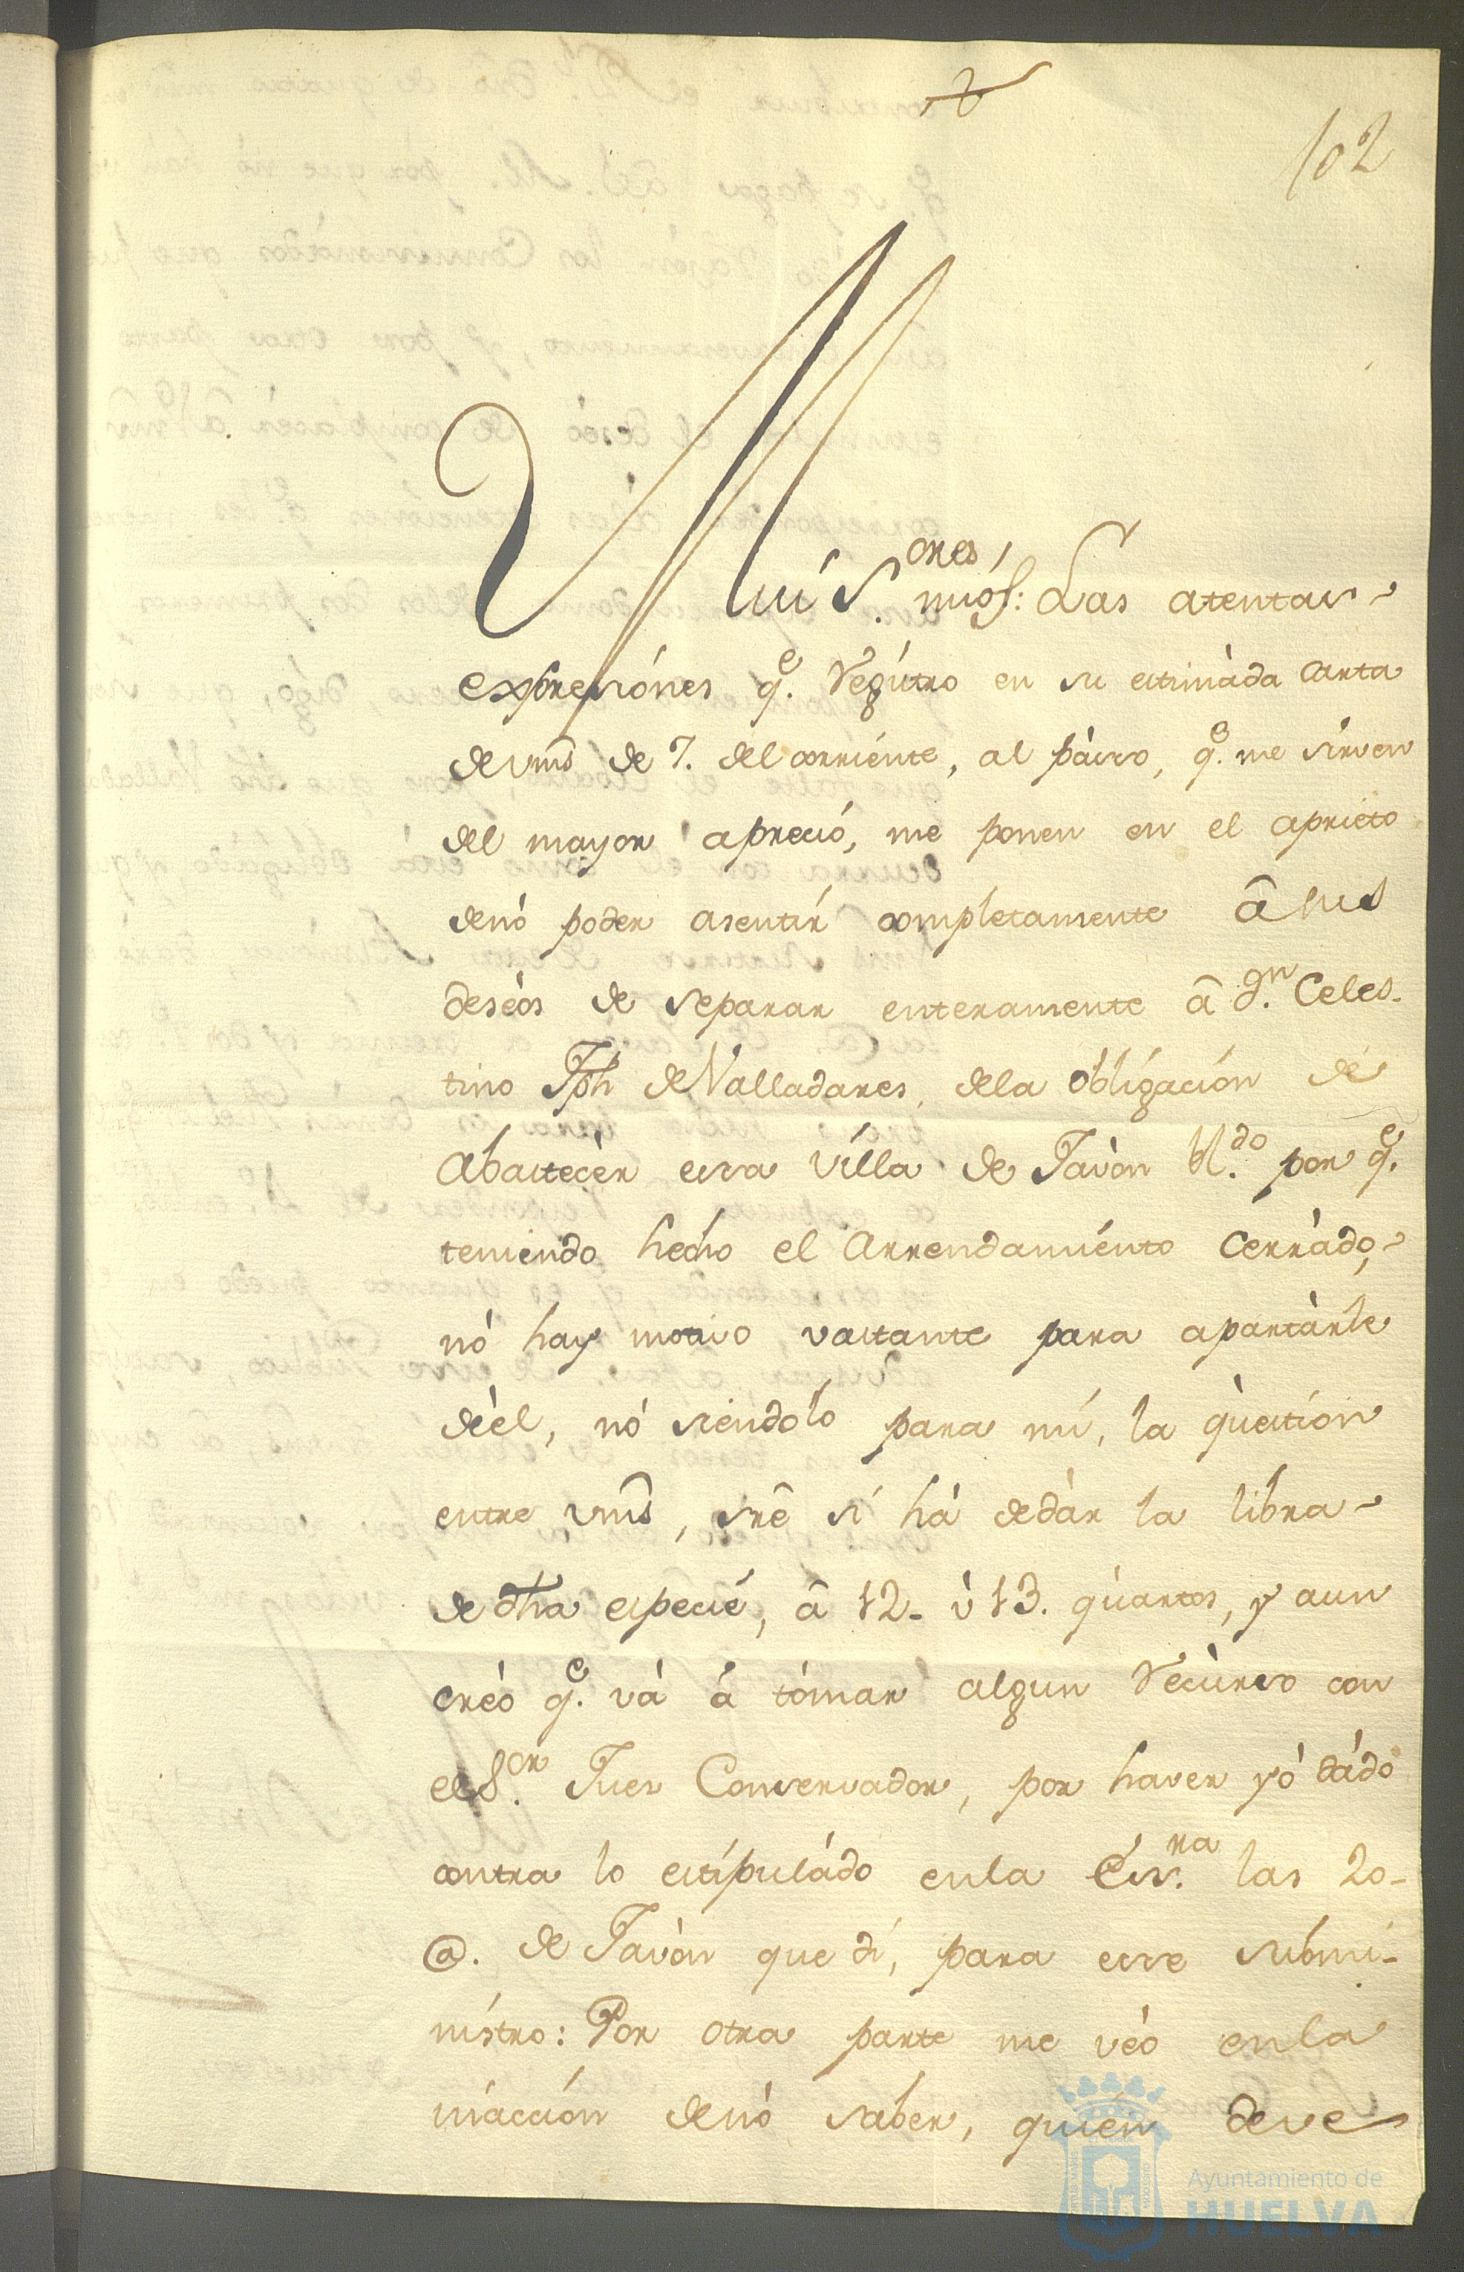 102
Mui S.ores mios: Las atentas
expresiónes q.e regístro en su estimàda carta
de vms de 7. del corriénte, al pàsso, q.e me sirven
del mayor apreció, me ponen en el aprieto
denò poder asentír completamente â sus
deseòs de separar enteramente â d.n Celes-
tino Jph de Valladares, dela obligación de
Abastecèr essa Villa de Javòn bl.do por q.e
teniendo hecho el Arrendamiénto cerràdo,
nò hay motivo vastante para apartàrle
deèl, nó siendolo para mí, la qùestion
entre vms, sre sí hà dedàr la libra
de dha especié, â 12- ò 13. qùartos, y aun
crèo q.e và à tómar algun recùrso con
el S.or Juez Conservador, por haver yò dádo
contra lo estípuládo enla Ess.ra las 20-
@. de Javòn que dí, para esse submi-
nístro: Por otra parte me vèo enla
inàcción denò saber, quién deve
Ayuntamiento de
HUELVA